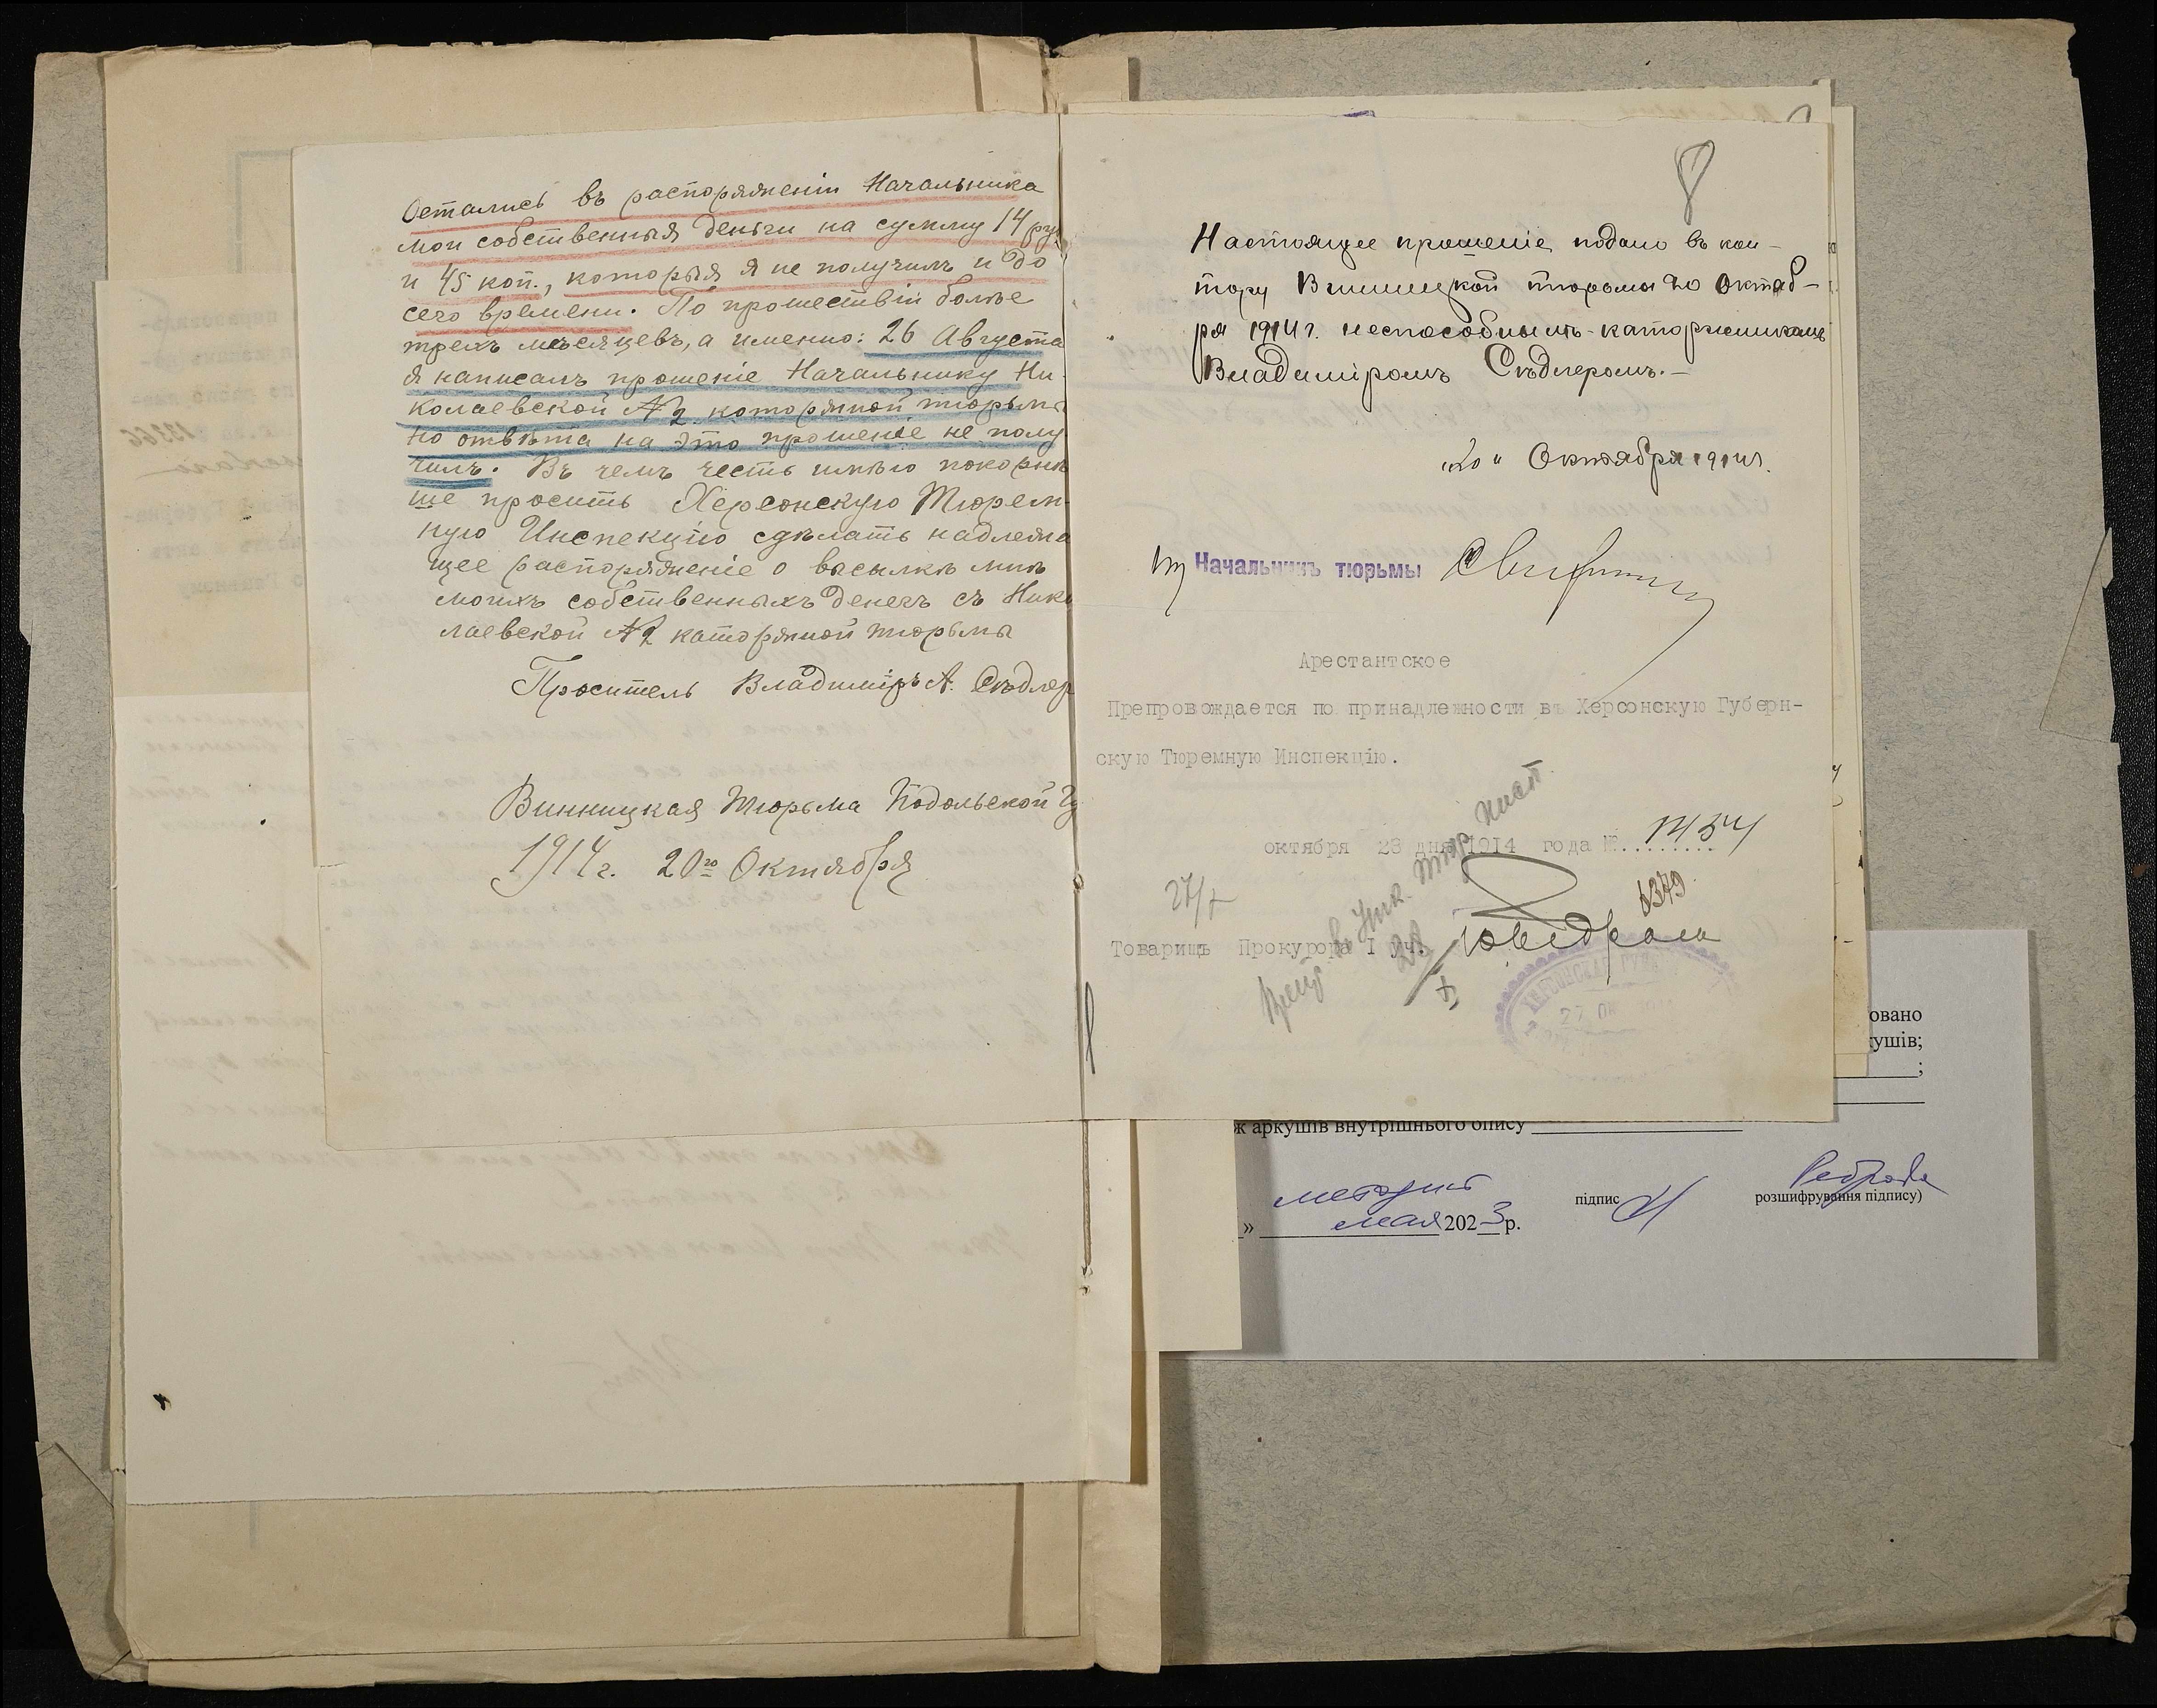 Остались въ распоряженіи Начальника
мои собственныя деньги на сумму 14 ру
и 45 коп., которыя я не получилъ и до
сего времени. По прошествіи болѣе
трехъ мѣсяцевъ, а именно: 26 Августа
я написалъ прошеніе Начальнику Ни-
колаевской №2 каторжной тюрьмы
но отвѣта на это прошеніе не полу
чилъ. Въ чемъ честь имѣю покорнѣ
ше просить Херсонскую Тюрем-
ную Инспекцію сдѣлать надлежа
щее распоряженіе о высылкѣ мнѣ
моихъ собственныхъ денегъ съ Нико
лаевской №2 каторжной тюрьмы
Проситель Владиміръ А. Сѣдлер
Винницкая Тюрьма Подольской Гу
1914г. 20го Октября
8
Настоящее прошеніе подано въ кон-
тору Винницкой тюрьмы 20 Октяб-
ря 1914 г. неспособнымъ-каторжникомъ
Владиміромъ Сѣдлеромъ.-
"20" Октября 1914г.
Начальникъ тюрьмы
Арестантское
Препровождается по принадлежности въ Херсонскую Губерн-
скую Тюремную Инспекцію.
октября 23 дня 1914 года №
27/X
1379
Товарищъ Прокурора I уч.
27 ОК
овано
кушів;
;
ж аркушів внутрішнього опису
методист
підпис
розшифрування підпису)
» мая 2023р.